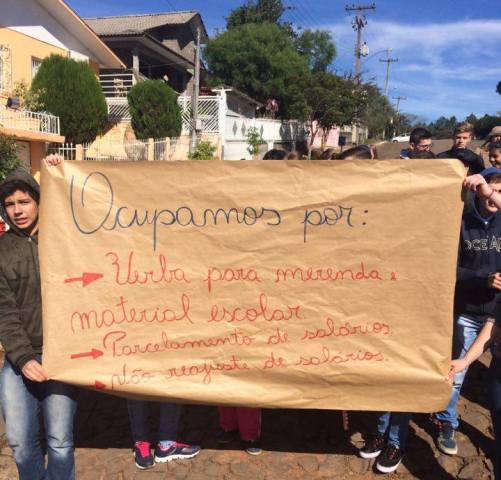 Ocupamos por:
→ Verba para merenda e
material escolar.
→ Parcelamento de salários.
→ Não reajuste de salários.
OCEA